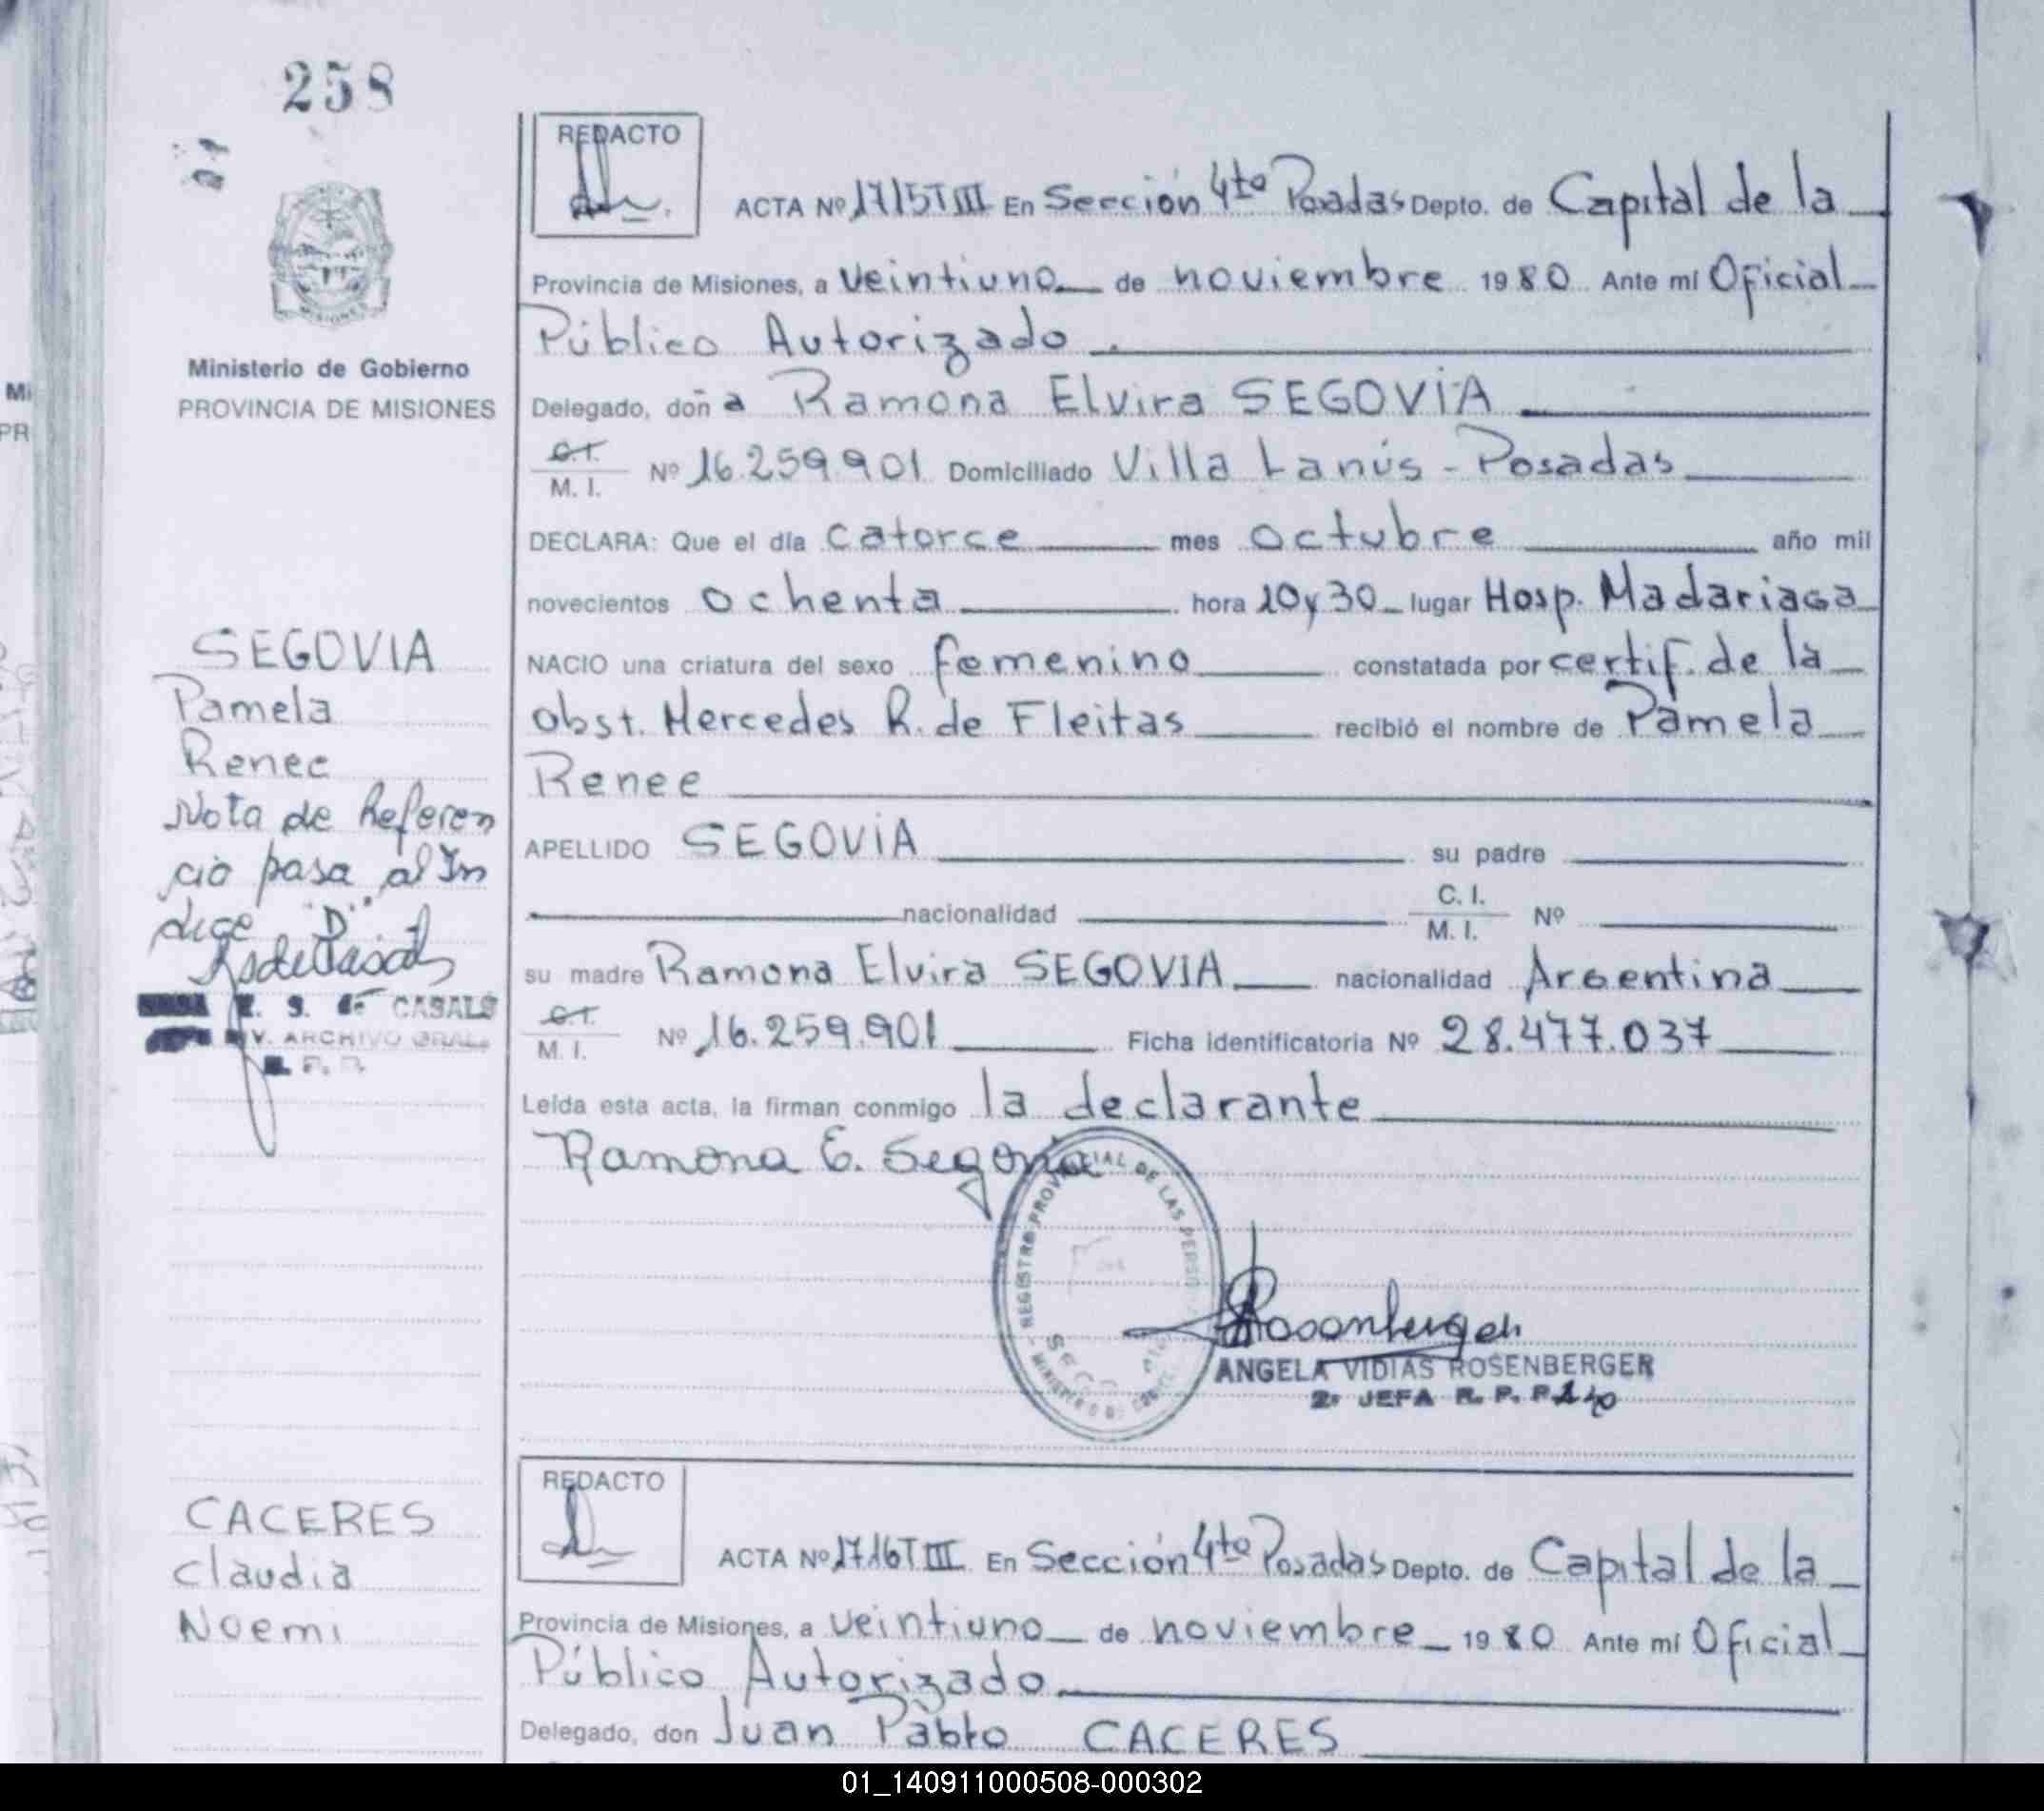 258
REDACTO
ACTA Nº 1715 T III En Sección 4to Posadas Depto. de Capital de la
Provincia de Misiones, a veintiuno de noviembre 1980 Ante mí Oficial
Público Autorizado
Ministerio de Gobierno
PROVINCIA DE MISIONES
Delegado, doña Ramona Elvira SEGOVIA
C.I.
M. I. Nº 16.259.901 Domiciliado Villa Lanús - Posadas
DECLARA: Que el día catorce mes octubre año mil
novecientos ochenta hora 10 y 30 lugar Hosp. Madariaga
NACIO una criatura del sexo femenino constatada por certif. de la
obst. Mercedes R. de Fleitas recibió el nombre de Pamela
Renee
APELLIDO SEGOVIA su padre
nacionalidad C. I.
M. I. Nº
su madre Ramona Elvira SEGOVIA nacionalidad Argentina
C.I.
M. I. Nº 16.259.901 Ficha identificatoria Nº 28.477.037
Leída esta acta, la firman conmigo la declarante
Ramona E. Segovia
SEGOVIA
Pamela
Renee
Nota de Referen
cia pasa al In
dice "D"
E. S. de CASALS
V. ARCHIVO GRAL.
R. P. P.
REGISTRO PROVINCIAL DE LAS PERSO
Rosenberger
ANGELA VIDIAS ROSENBERGER
2º JEFA R. P. P.
REDACTO
ACTA Nº 1716 T III En Sección 4to Posadas Depto. de Capital de la
Provincia de Misiones, a veintiuno de noviembre 1980 Ante mí Oficial
Público Autorizado
Delegado, don Juan Pablo CACERES
CACERES
Claudia
Noemi
01_140911000508-000302